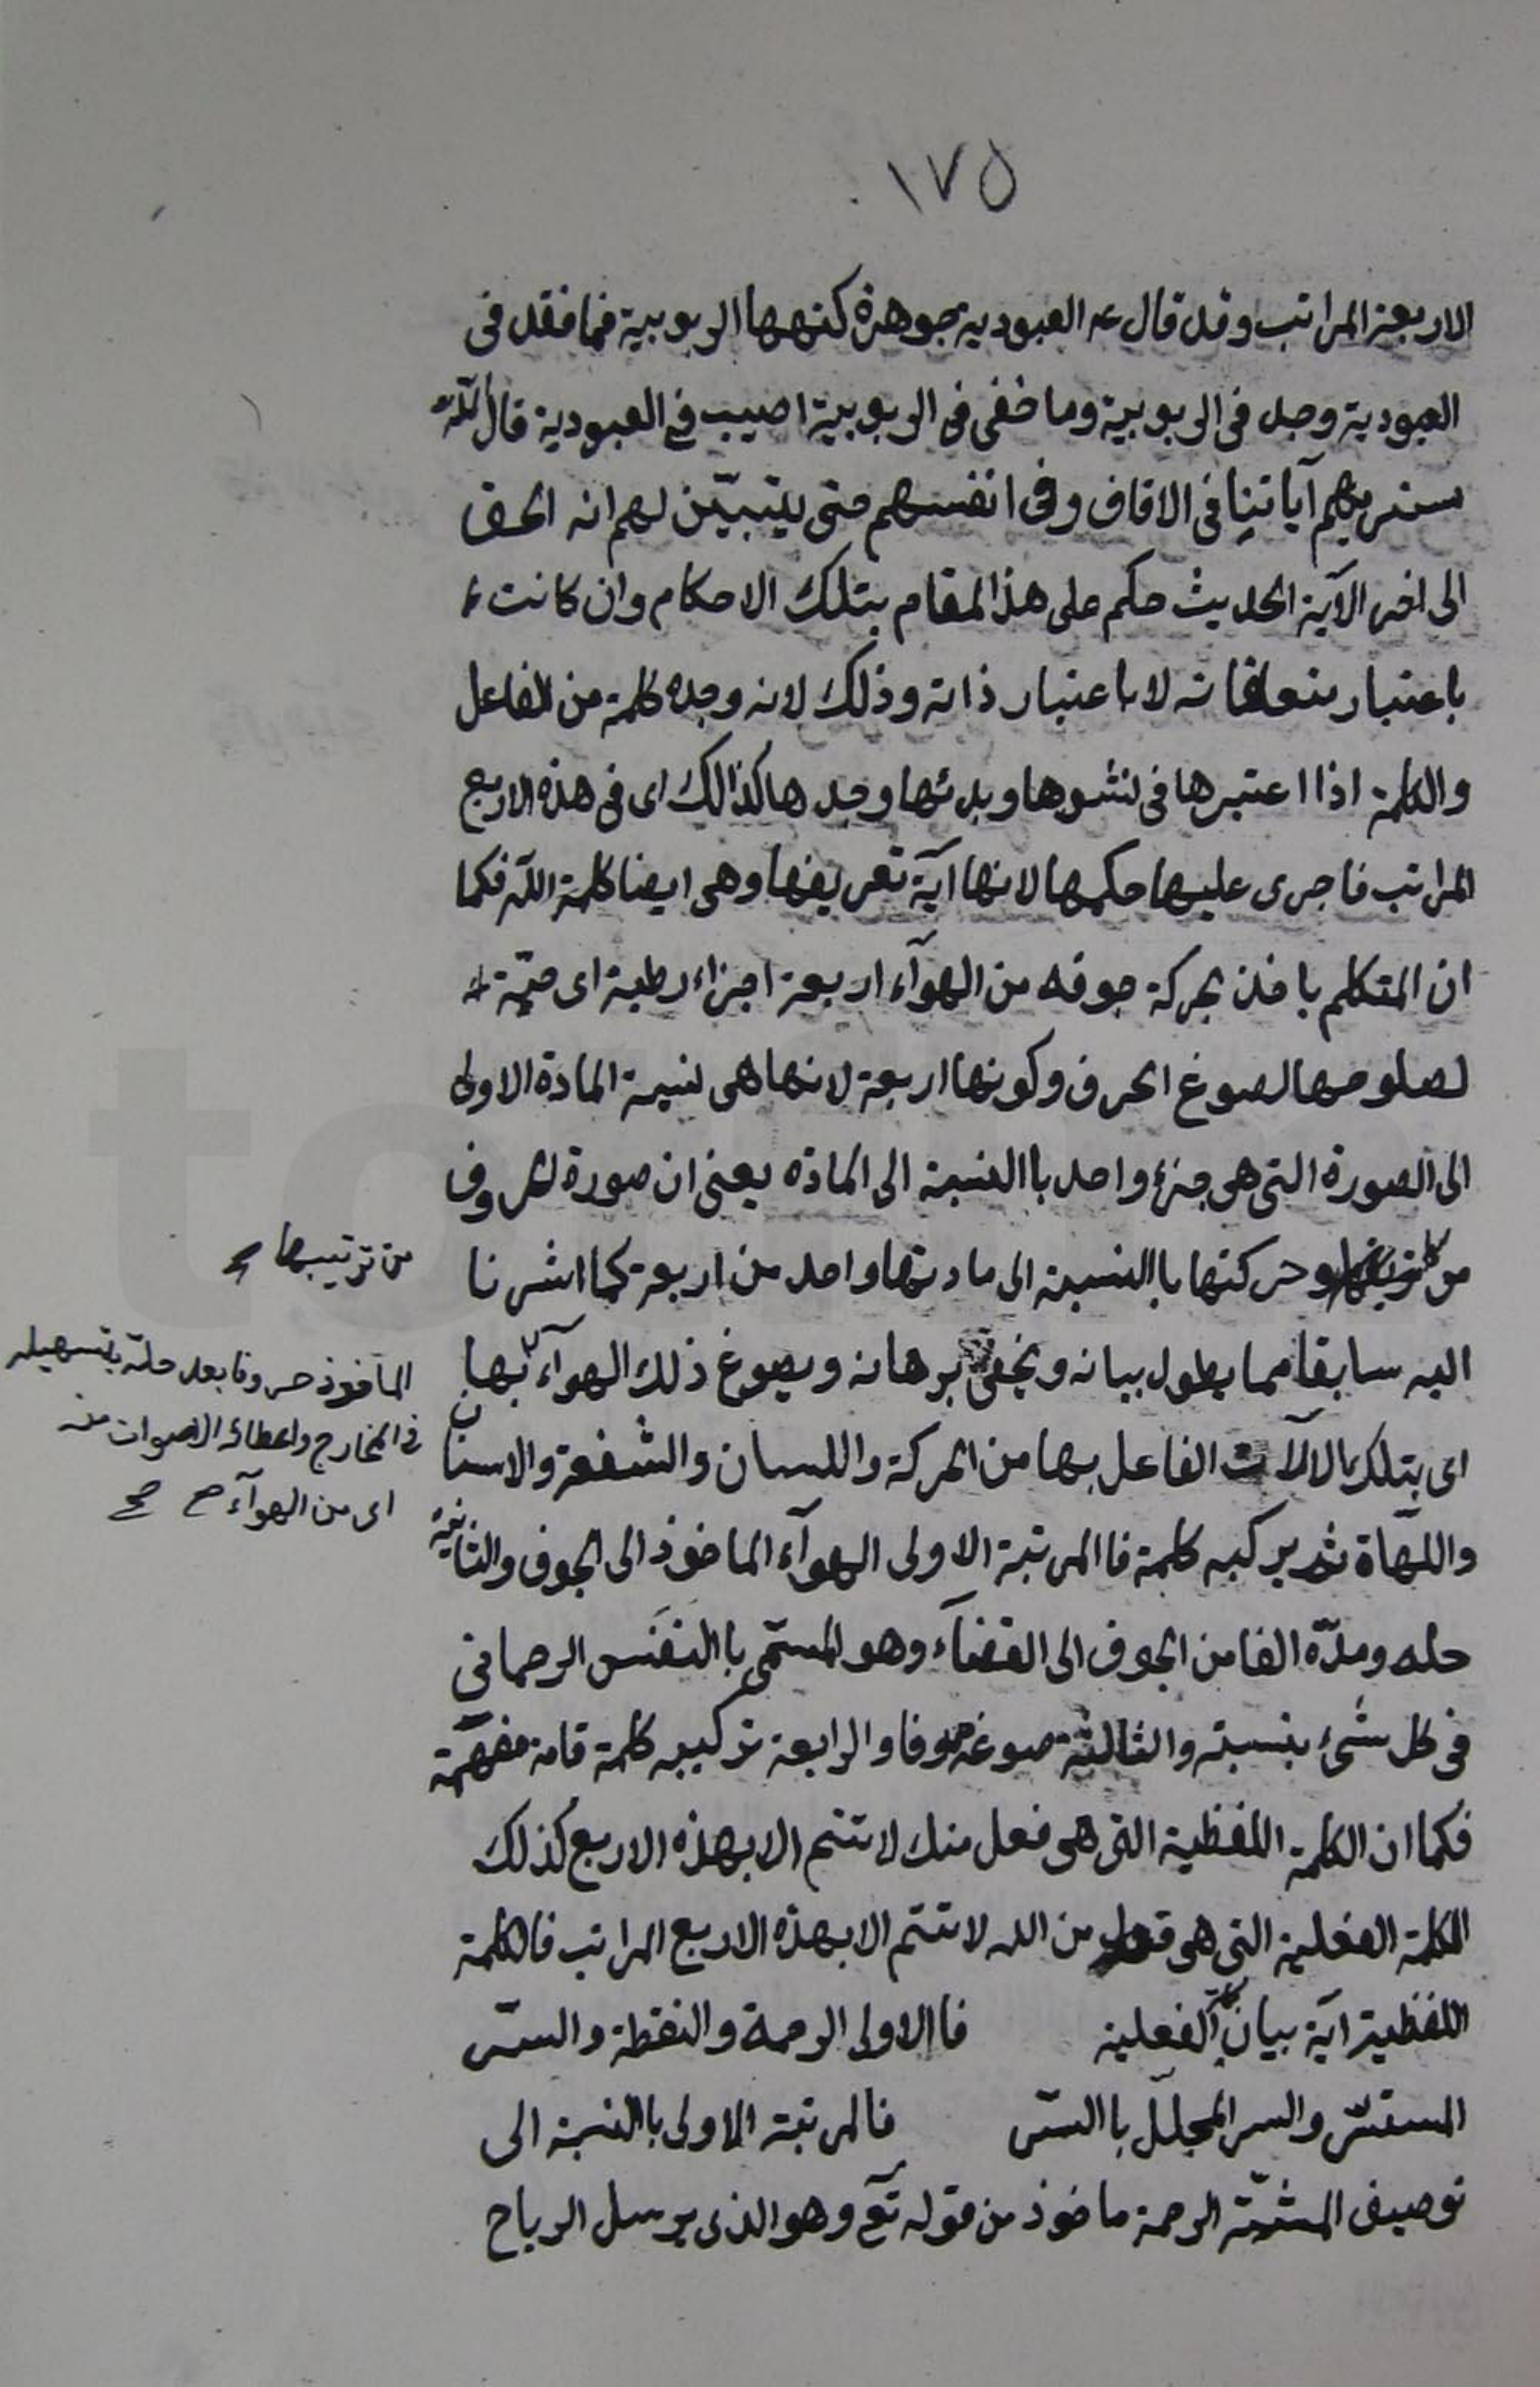 ١٧٥
الاربعة المراتب وقد قال ع العبودية جوهرة كنهها الربوبية فما فقد فى
العبودية وجد فى الربوبية وما خفى فى الربوبية اصيب فى العبودية قال الله
سنريهم آياتنا فى الافاق وفى انفسهم حتى يتبيّن لهم انه الحق
الى اخر الآية الحديث حكم على هذا المقام بتلك الاحكام وان كانت
باعتبار متعلقاته لا باعتبار ذاته وذلك لانه وجده كلمة من الفاعل
والكلمة اذا اعتبرها فى نشوها وبدئها وجدها كذالك اى فى هذه الاربع
المراتب فاجرى عليها حكمها لانها آية تعريفها وهى ايضا كلمة الله فكما
ان المتكلم ياخذ بحركة جوفه من الهوآء اربعة اجزاء رطبة اى حيّة
لصلوحها لصوغ الحرف وكونها اربعة لانها هى نسبة المادة الاولى
الى الصورة التى هى جزء واحد باالنسبة الى المادّة يعنى ان صورة الحروف
من وحركتها باالنسبة الى مادتها واحد من اربعة كما اشرنا
من ترتيبها
اليه سابقا مما يطول بيانه ويخفى برهانه ويصوغ ذلك الهوآء بها
الماخوذ حروفا بعد حلّه بتسهيله
فى المخارج واعطائه الاصوات منه
اى من الهوآء صح
اى بتلك الالآت الفاعل بها من الحركة واللسان والشفة والاسنان
واللهاة ثم يركبه كلمة فاالمرتبة الاولى الهوآء الماخوذ الى الجوف والثانية
حله ومدّه الفا من الجوف الى الفضآء وهو المسمّى باالنفَس الرحمانى
فى كل شىء بنسبته والثالثة صوغه حروفا والرابعة تركيبه كلمة تامة مفهمة
فكما ان الكلمة اللفظية التى هى فعل منك لا تتم الا بهذه الاربع كذلك
الكلمة الفعلية التى هى من الله لا تتم الا بهذه الاربع المراتب فالكلمة
اللفظية آية بيان الفعلية فاالاولى الرحمة والنقطة والسّر
المستسّر والسر المجلل باالسّر فالمرتبة الاولى باالنسبة الى
توصيف المشيّة الرحمة ماخوذ من قوله تع وهو الذى يرسل الرياح